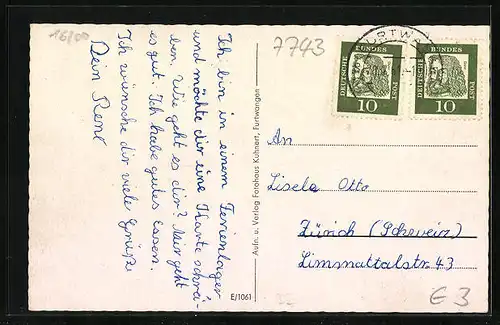 16/00
Ich bin in einem Ferienlager
und möchte dir eine Kharte schrei-
ben. Wie geht es dir? Mir geht
es gut. Ich habe gutes Essen.
Ich wünsche dir viele Grüße
Dein René
Aufn. u. Verlag Fotohaus Kuhnert, Furtwangen
E/1061
7743
FURTWA
DEUTSCHE
BUNDES
POST
10
DEUTSCHE
BUNDES
POST
10
An
Lisela Otto
Zürich (Schweiz)
Limmattalstr. 43
E 3